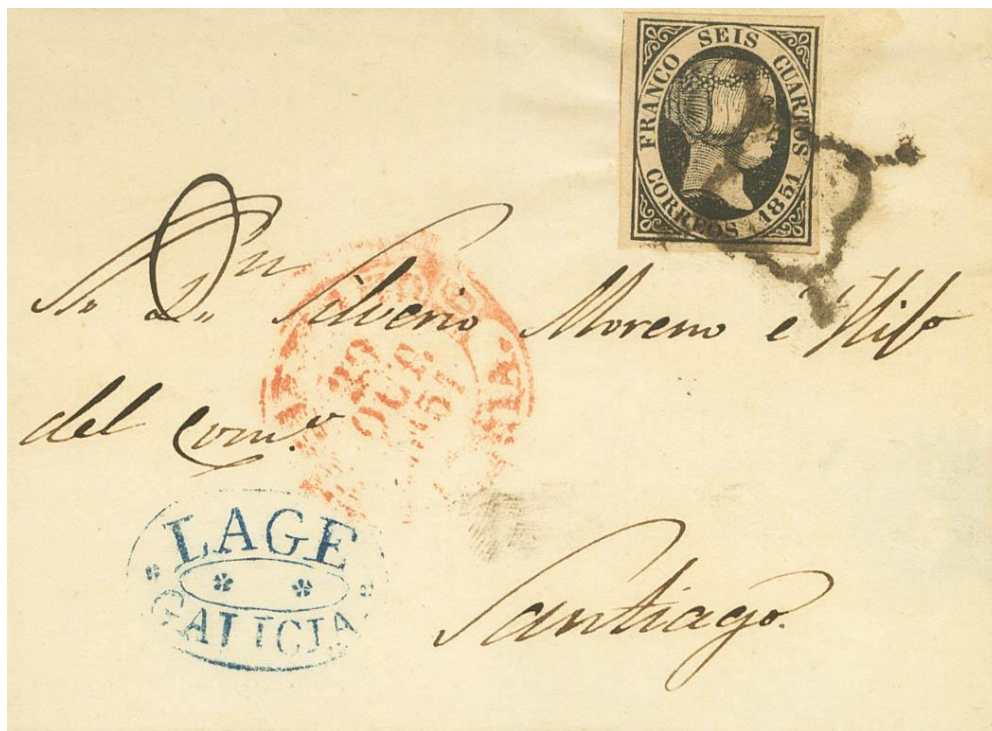 FRANCO SEIS CUARTOS
CORREOS 1851
Sr Dn Silverio Moreno e Hijo
del Como
29
OCT.
51
LAGE
GALICIA
Santiago.